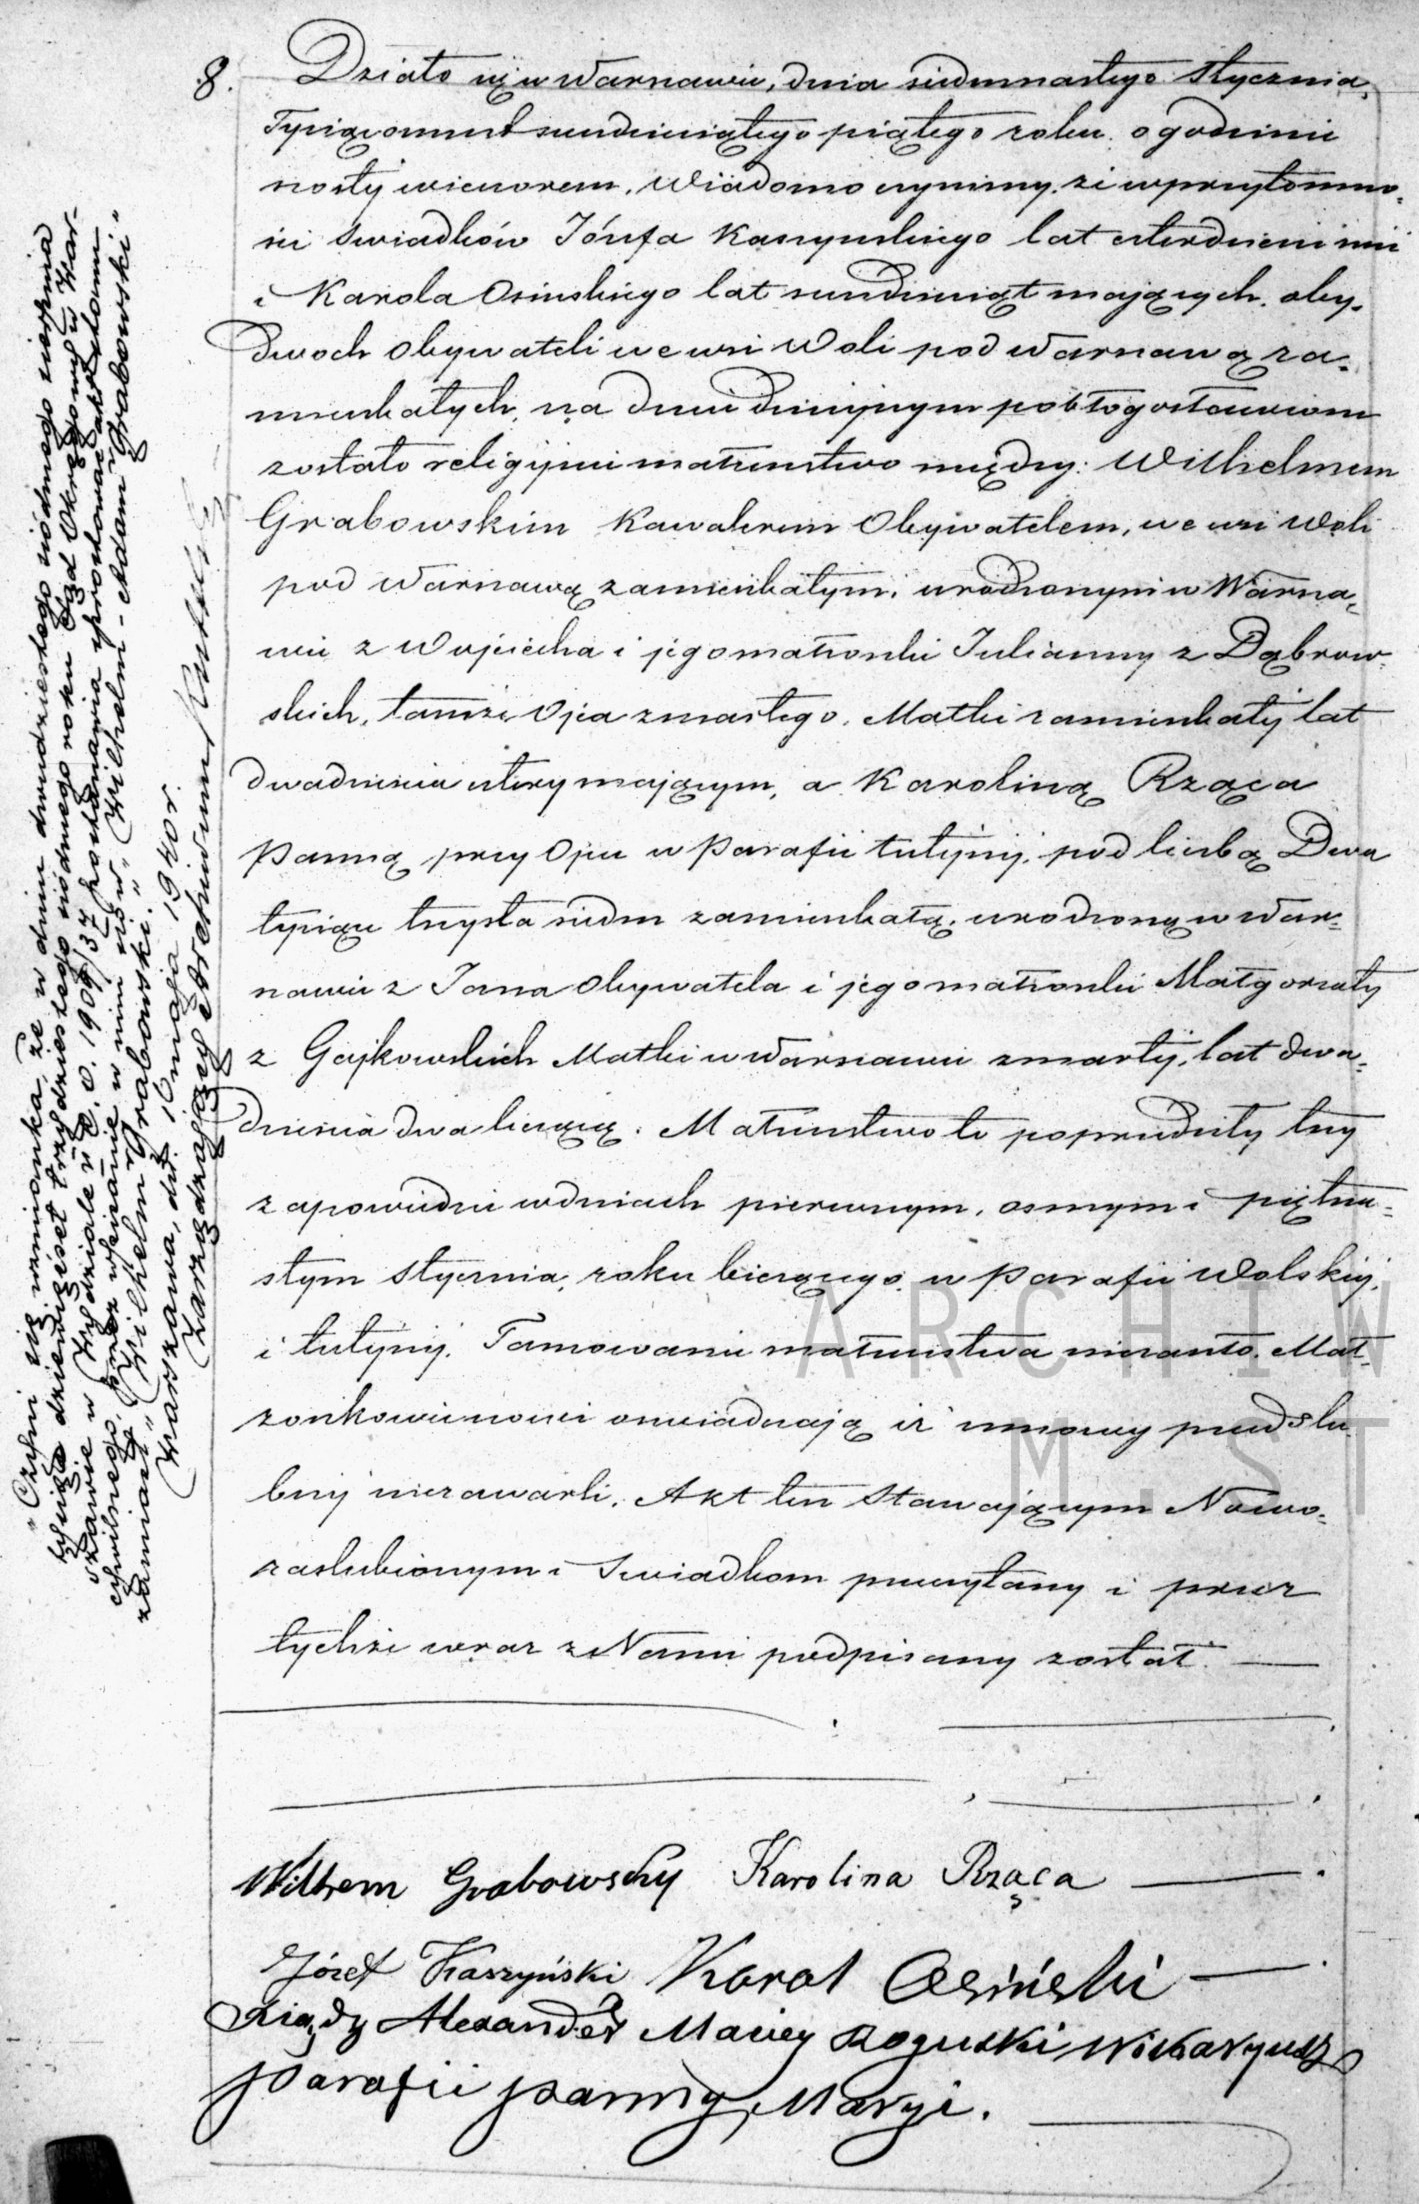 8. Działo się w Warszawie, dnia siedmnastego Stycznia,
Tysiąc ośmset sześćdziesiątego piątego roku. o godzinie
szóstej wieczorem. Wiadomo czynimy, że w przytomno-
ści Swiadków Józefa Kaszyńskiego lat czterdzieści
i Karola Osińskiego lat sześćdziesiąt mających. oby-
dwoch Obywateli we wsi Woli pod Warszawą za-
mieszkałych, na dniu dzisiejszym pobłogosławione
zostało religijnie małżeństwo między: Wilhelmem
Grabowskim Kawalerem Obywatelem, we wsi Woli
pod Warszawą zamieszkałym, urodzonym w Warsza-
wie z Wojciecha i jego małżonki Julianny z Dąbrow-
skich, tamże Ojca zmarłego, Matki zamieszkałej lat
dwadzieścia cztery mającym, a Karoliną Rząca
Panną przy Ojcu w Parafii tutejszej, pod liczbą Dwa
tysiące trzysta siedm zamieszkałą, urodzoną w War-
szawie z Jana Obywatela i jego małżonki Małgorzaty
z Gajkowskich Matki w Warszawie zmarłej, lat dwa-
dzieścia dwa liczącą. Małżeństwo to poprzedziły trzy
zapowiedzi w dniach pierwszym, osmym i piętna-
stym Stycznia, roku bieżącego, w Parafii Wolskiej,
i tutejszej. Tamowanie małżeństwa nie zaszło. Mał-
żonkowie nowi oswiadczają iż umowy przedślu-
bnej nie zawarli. Akt ten Stawającym Nowo-
zaslubionym i Swiadkom przeczytany i przez
tychże wraz z Nami podpisany został.
Wilhem Grabowschy Karolina Rząca
Józef Kaszyński Karol Osiński
Xiądz Alexander Maciey Rogulski Wikaryusz
Parafii Panny Maryi.
"Czyni się wzmianka, że w dniu dwudziestego siódmego sierpnia
tysiąc dziewięćset trzydziestego siódmego roku Sąd Okręgowy w War-
szawie w Wydziale C. 1909/37 postanowił sprostować akt stanu
cywilnego, przez wpisanie w nim słów "Wilhelm-Adam Grabowski"
zamiast "Wilhelm Grabowski."
Warszawa, dn. 10 maja 1940 r.
Zarządzający Archiwum
ARCHIW
M. ST